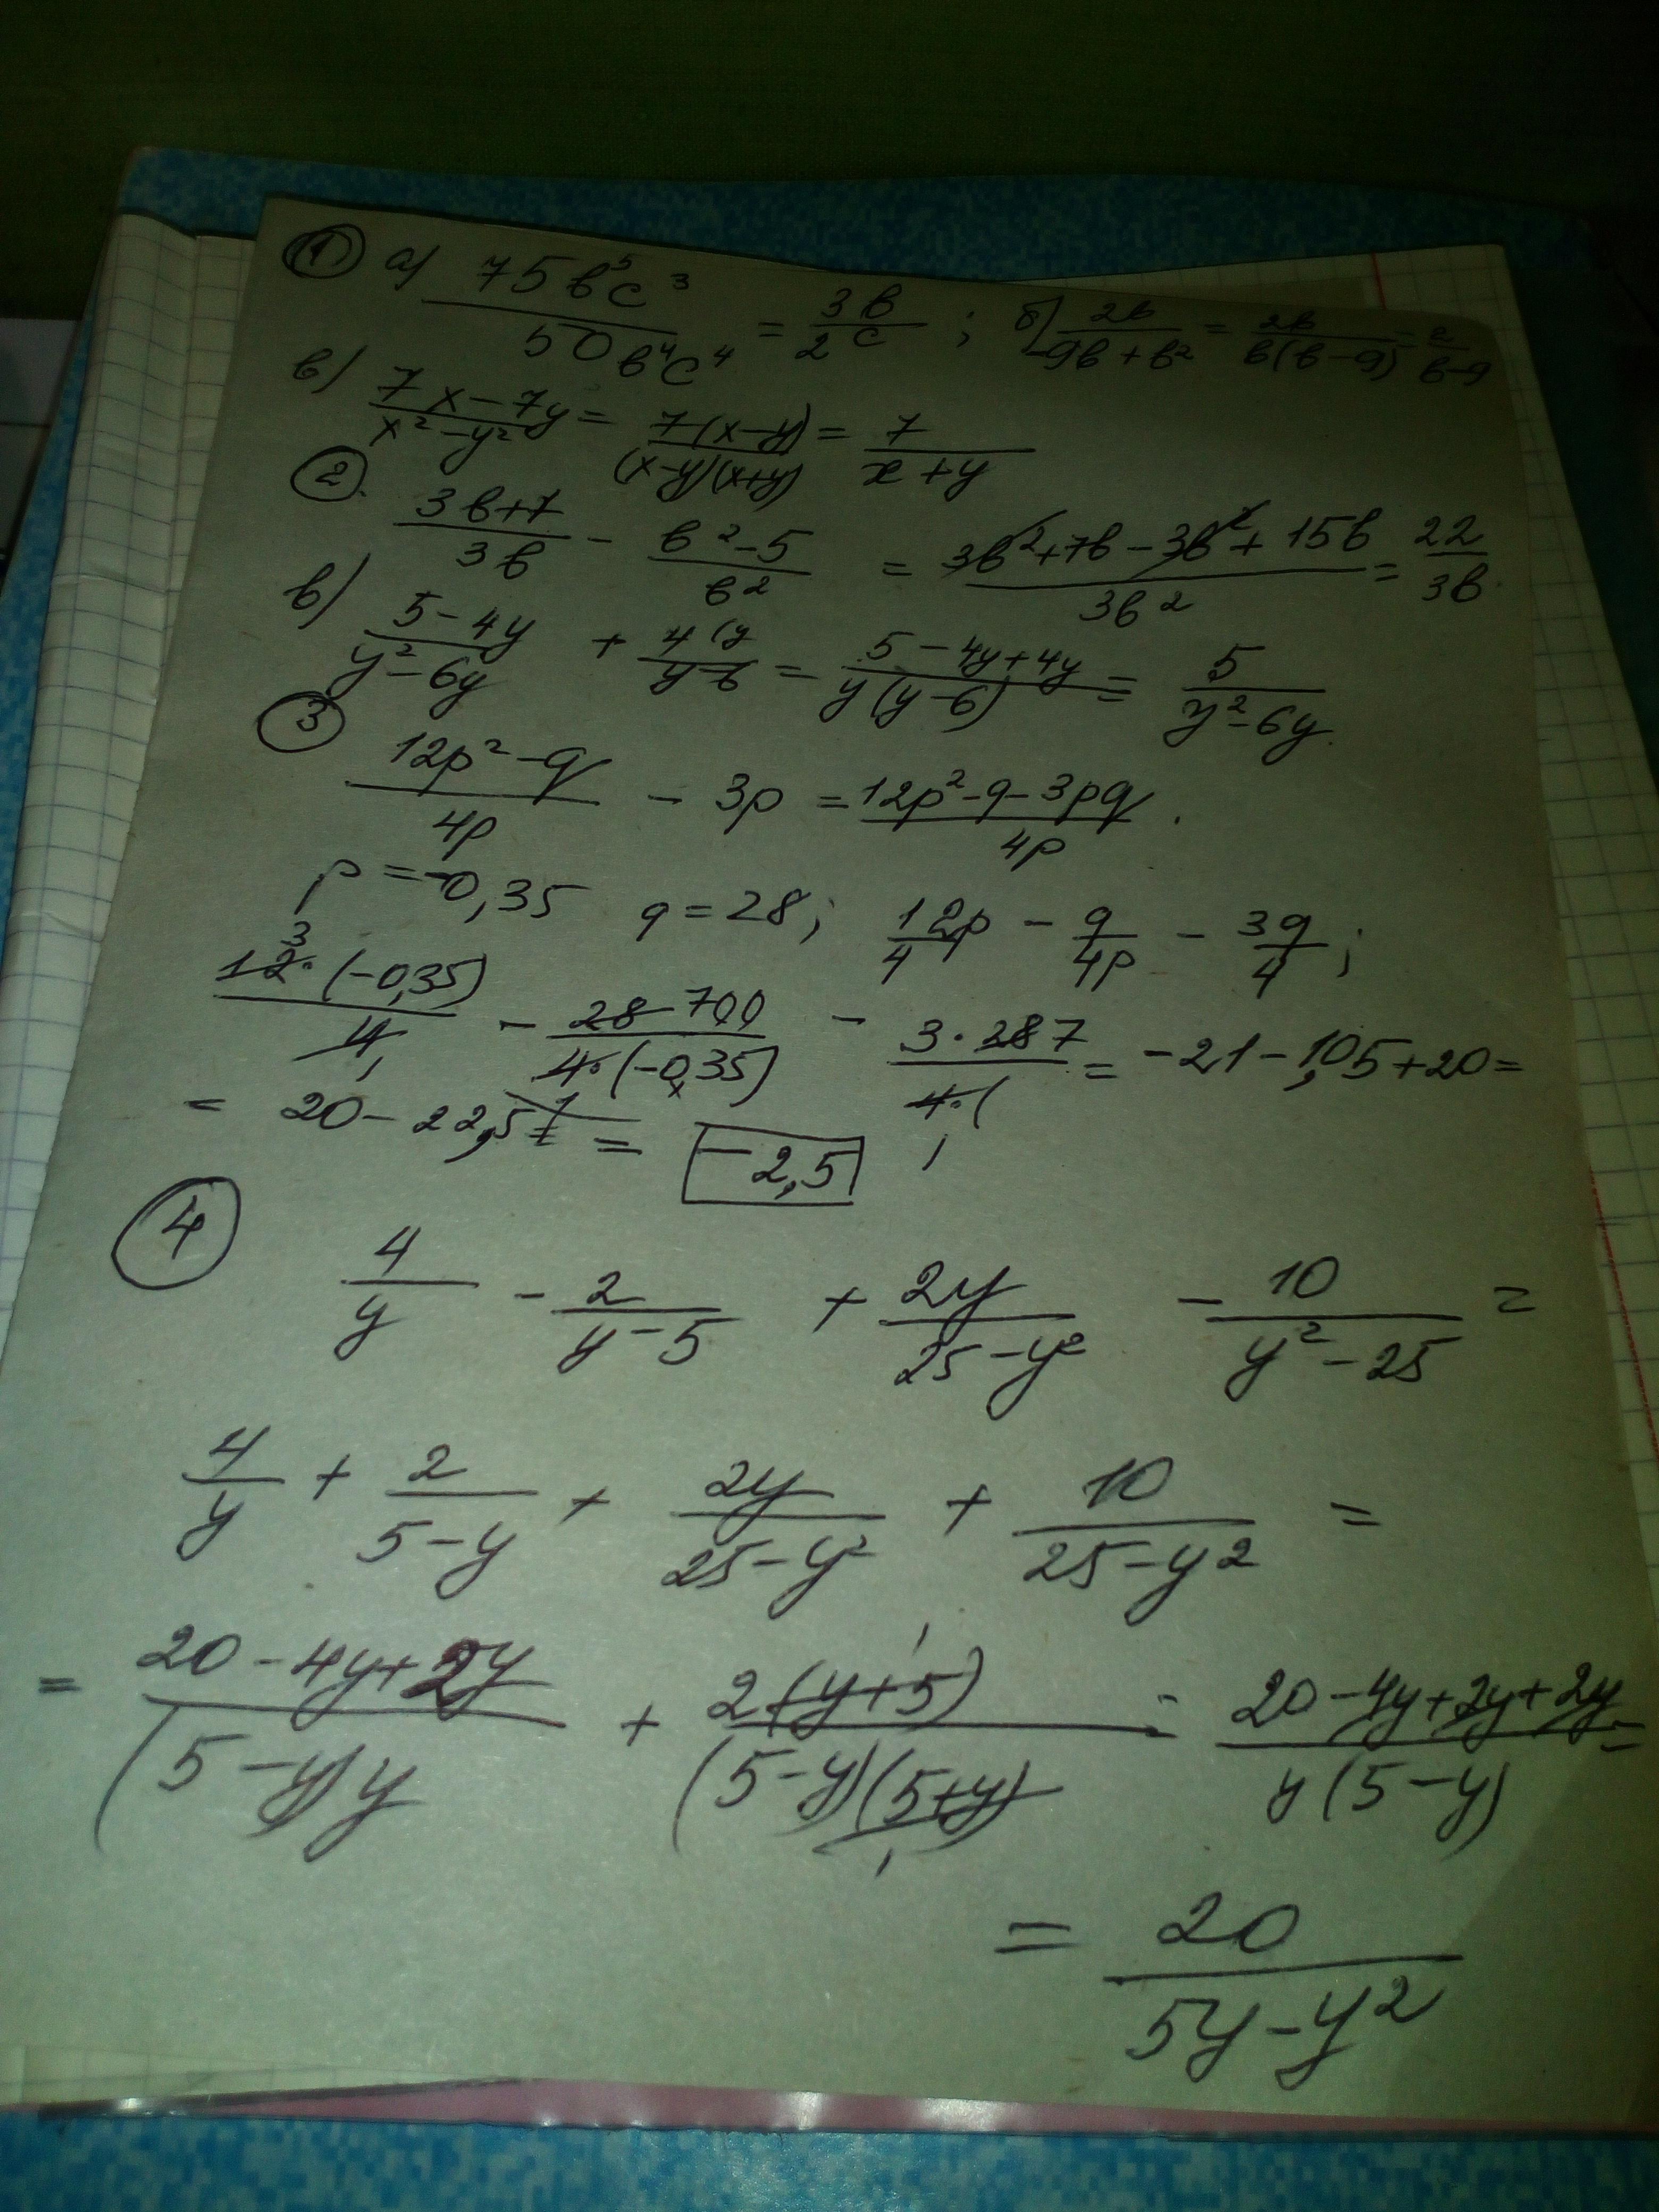 ① а) 75b⁵c³/50b⁴c⁴ = 3b/2c ; б) 2b/-9b+b² = 2b/b(b-9) = 2/b-9
в) 7x-7y/x²-y² = 7(x-y)/(x-y)(x+y) = 7/x+y
②. 3b+7/3b - b²-5/b² = 3b²+7b-3b²+15b/3b² = 22/3b.
в) 5-4y/y²-6y + 4/y-6 = 5-4y+4y/y(y-6) = 5/y²-6y.
③ 12p²-q/4p - 3p = 12p²-q-3pq/4p.
p=-0,35 q=28; 12p/4 - q/4p - 3q/4;
12·(-0,35)/4 - 28 700/4·(-0,35) - 3·28 7/4·( = -21-1,05+20=
= 20-22,5 = -2,5
④ 4/y - 2/y-5 + 2y/25-y² - 10/y²-25 =
4/y + 2/5-y + 2y/25-y² + 10/25-y² =
= 20-4y+2y/(5-y)y + 2(y+5)/(5-y)(5+y) = 20-4y+2y+2y/y(5-y) =
= 20/5y-y²